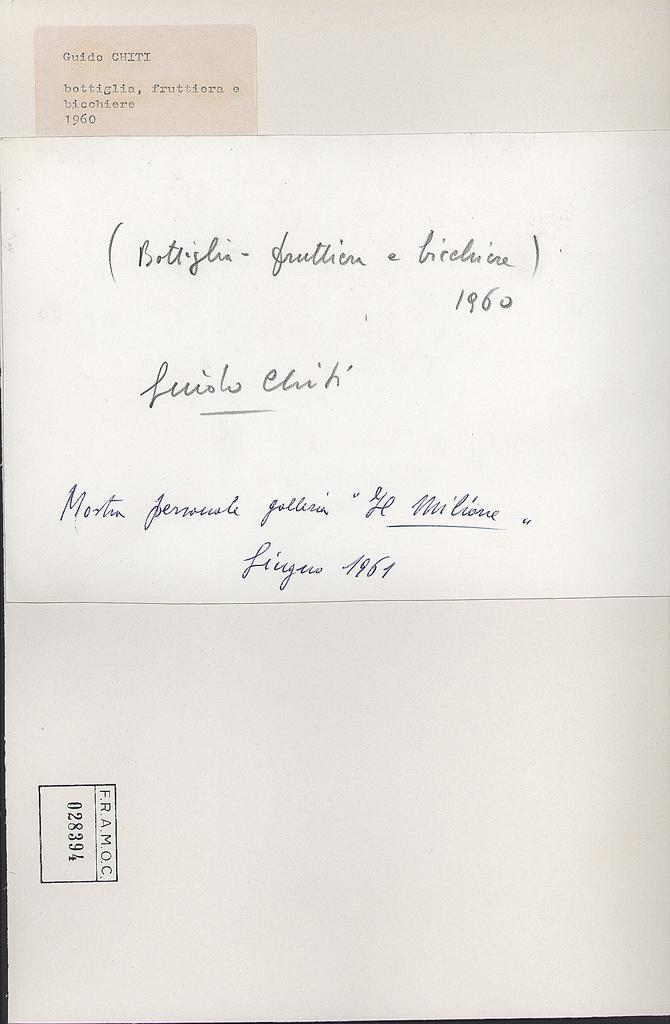 Guido CHITI
bottiglia, fruttiera e
bicchiere
1960
( Bottiglia - fruttiera e bicchiere )
1960
Guido Chiti
Mostra personale galleria "Il Milione"
Giugno 1961
F.R.A.M.O.C.
028394